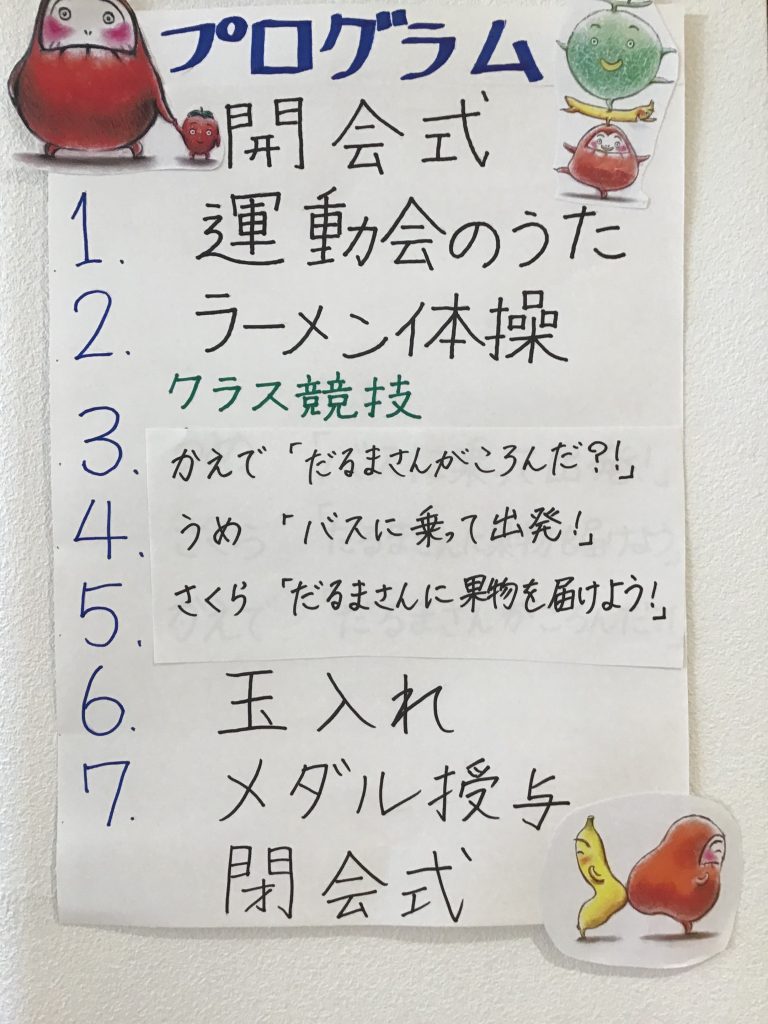 プログラム
開会式
1. 運動会のうた
2. ラーメン体操
クラス競技
3. かえで「だるまさんがころんだ?!」
4. うめ「バスに乗って出発!」
5. さくら「だるまさんに果物を届けよう!」
6. 玉入れ
7. メダル授与
閉会式